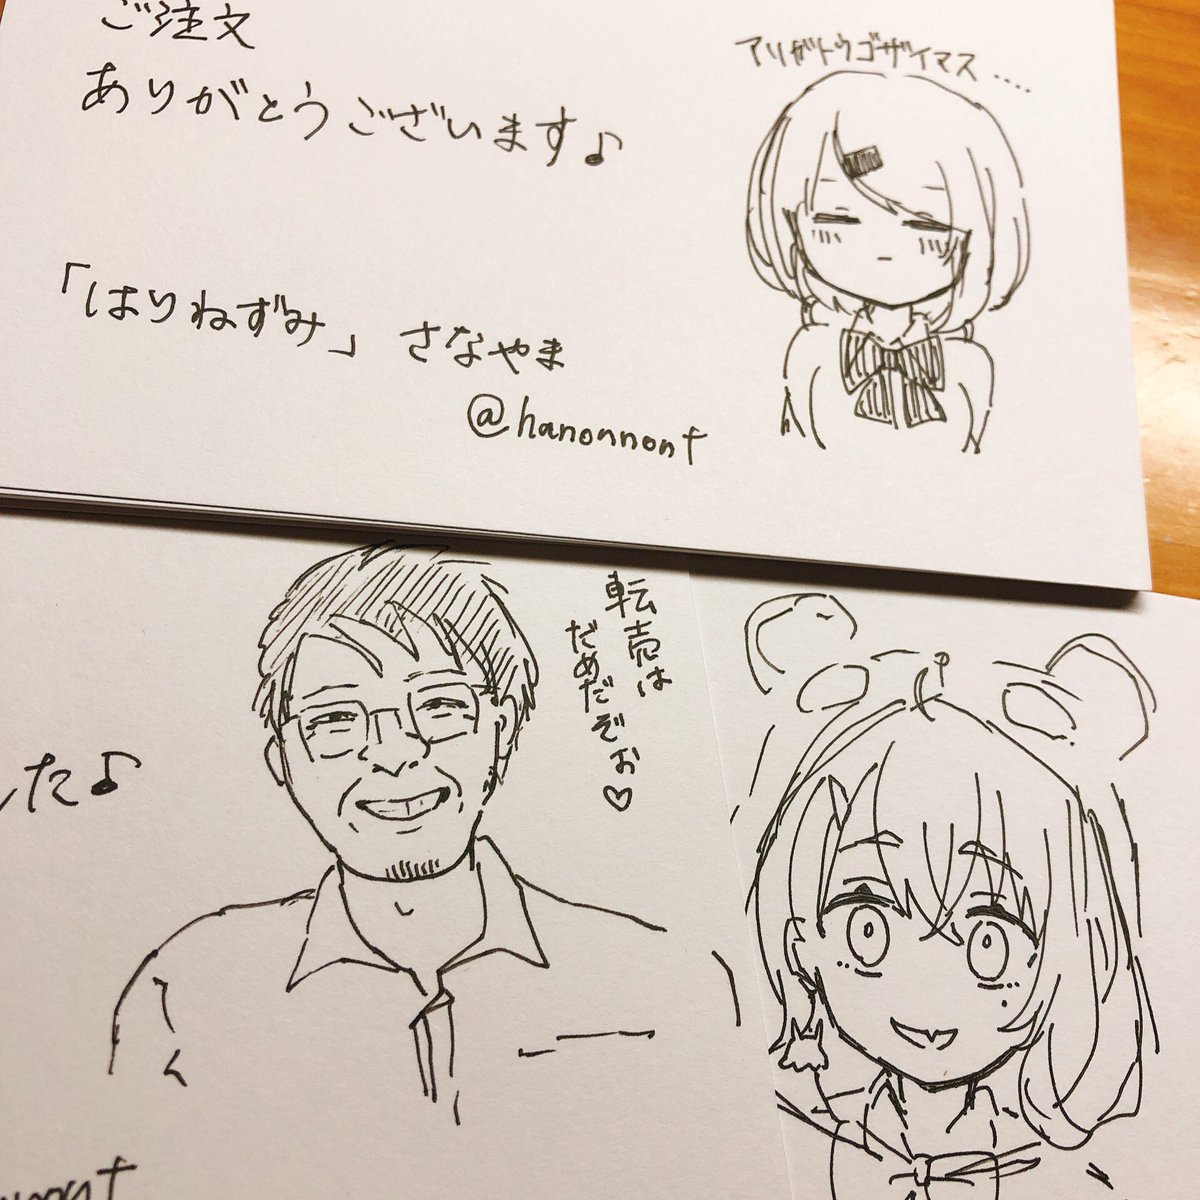 ご注文
ありがとうございます♪
アリガトウゴザイマス……
「はりねずみ」 さなやま
@hanonnont
転売は
だめだぞぉ♡
した♪